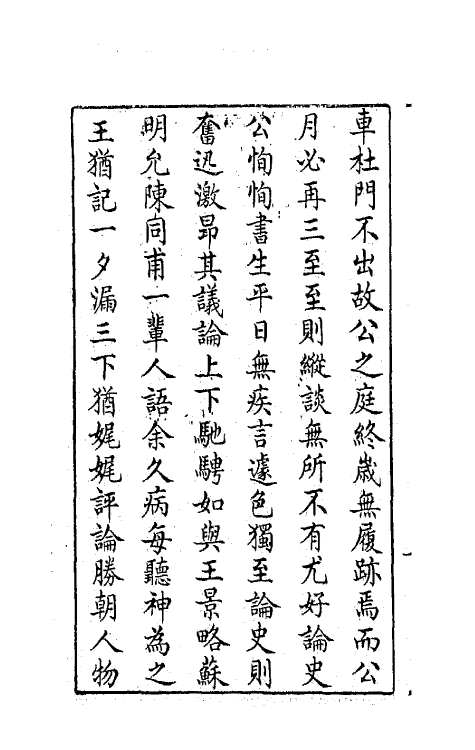 車杜門不出故公之庭終歲無履跡焉而公
月必再三至至則縱談無所不有尤好論史
公恂恂書生平日無疾言遽色獨至論史則
奮迅激昂其議論上下馳騁如與王景略蘇
明允陳同甫一輩人語余久病每聽神為之
王猶記一夕漏三下猶娓娓評論勝朝人物